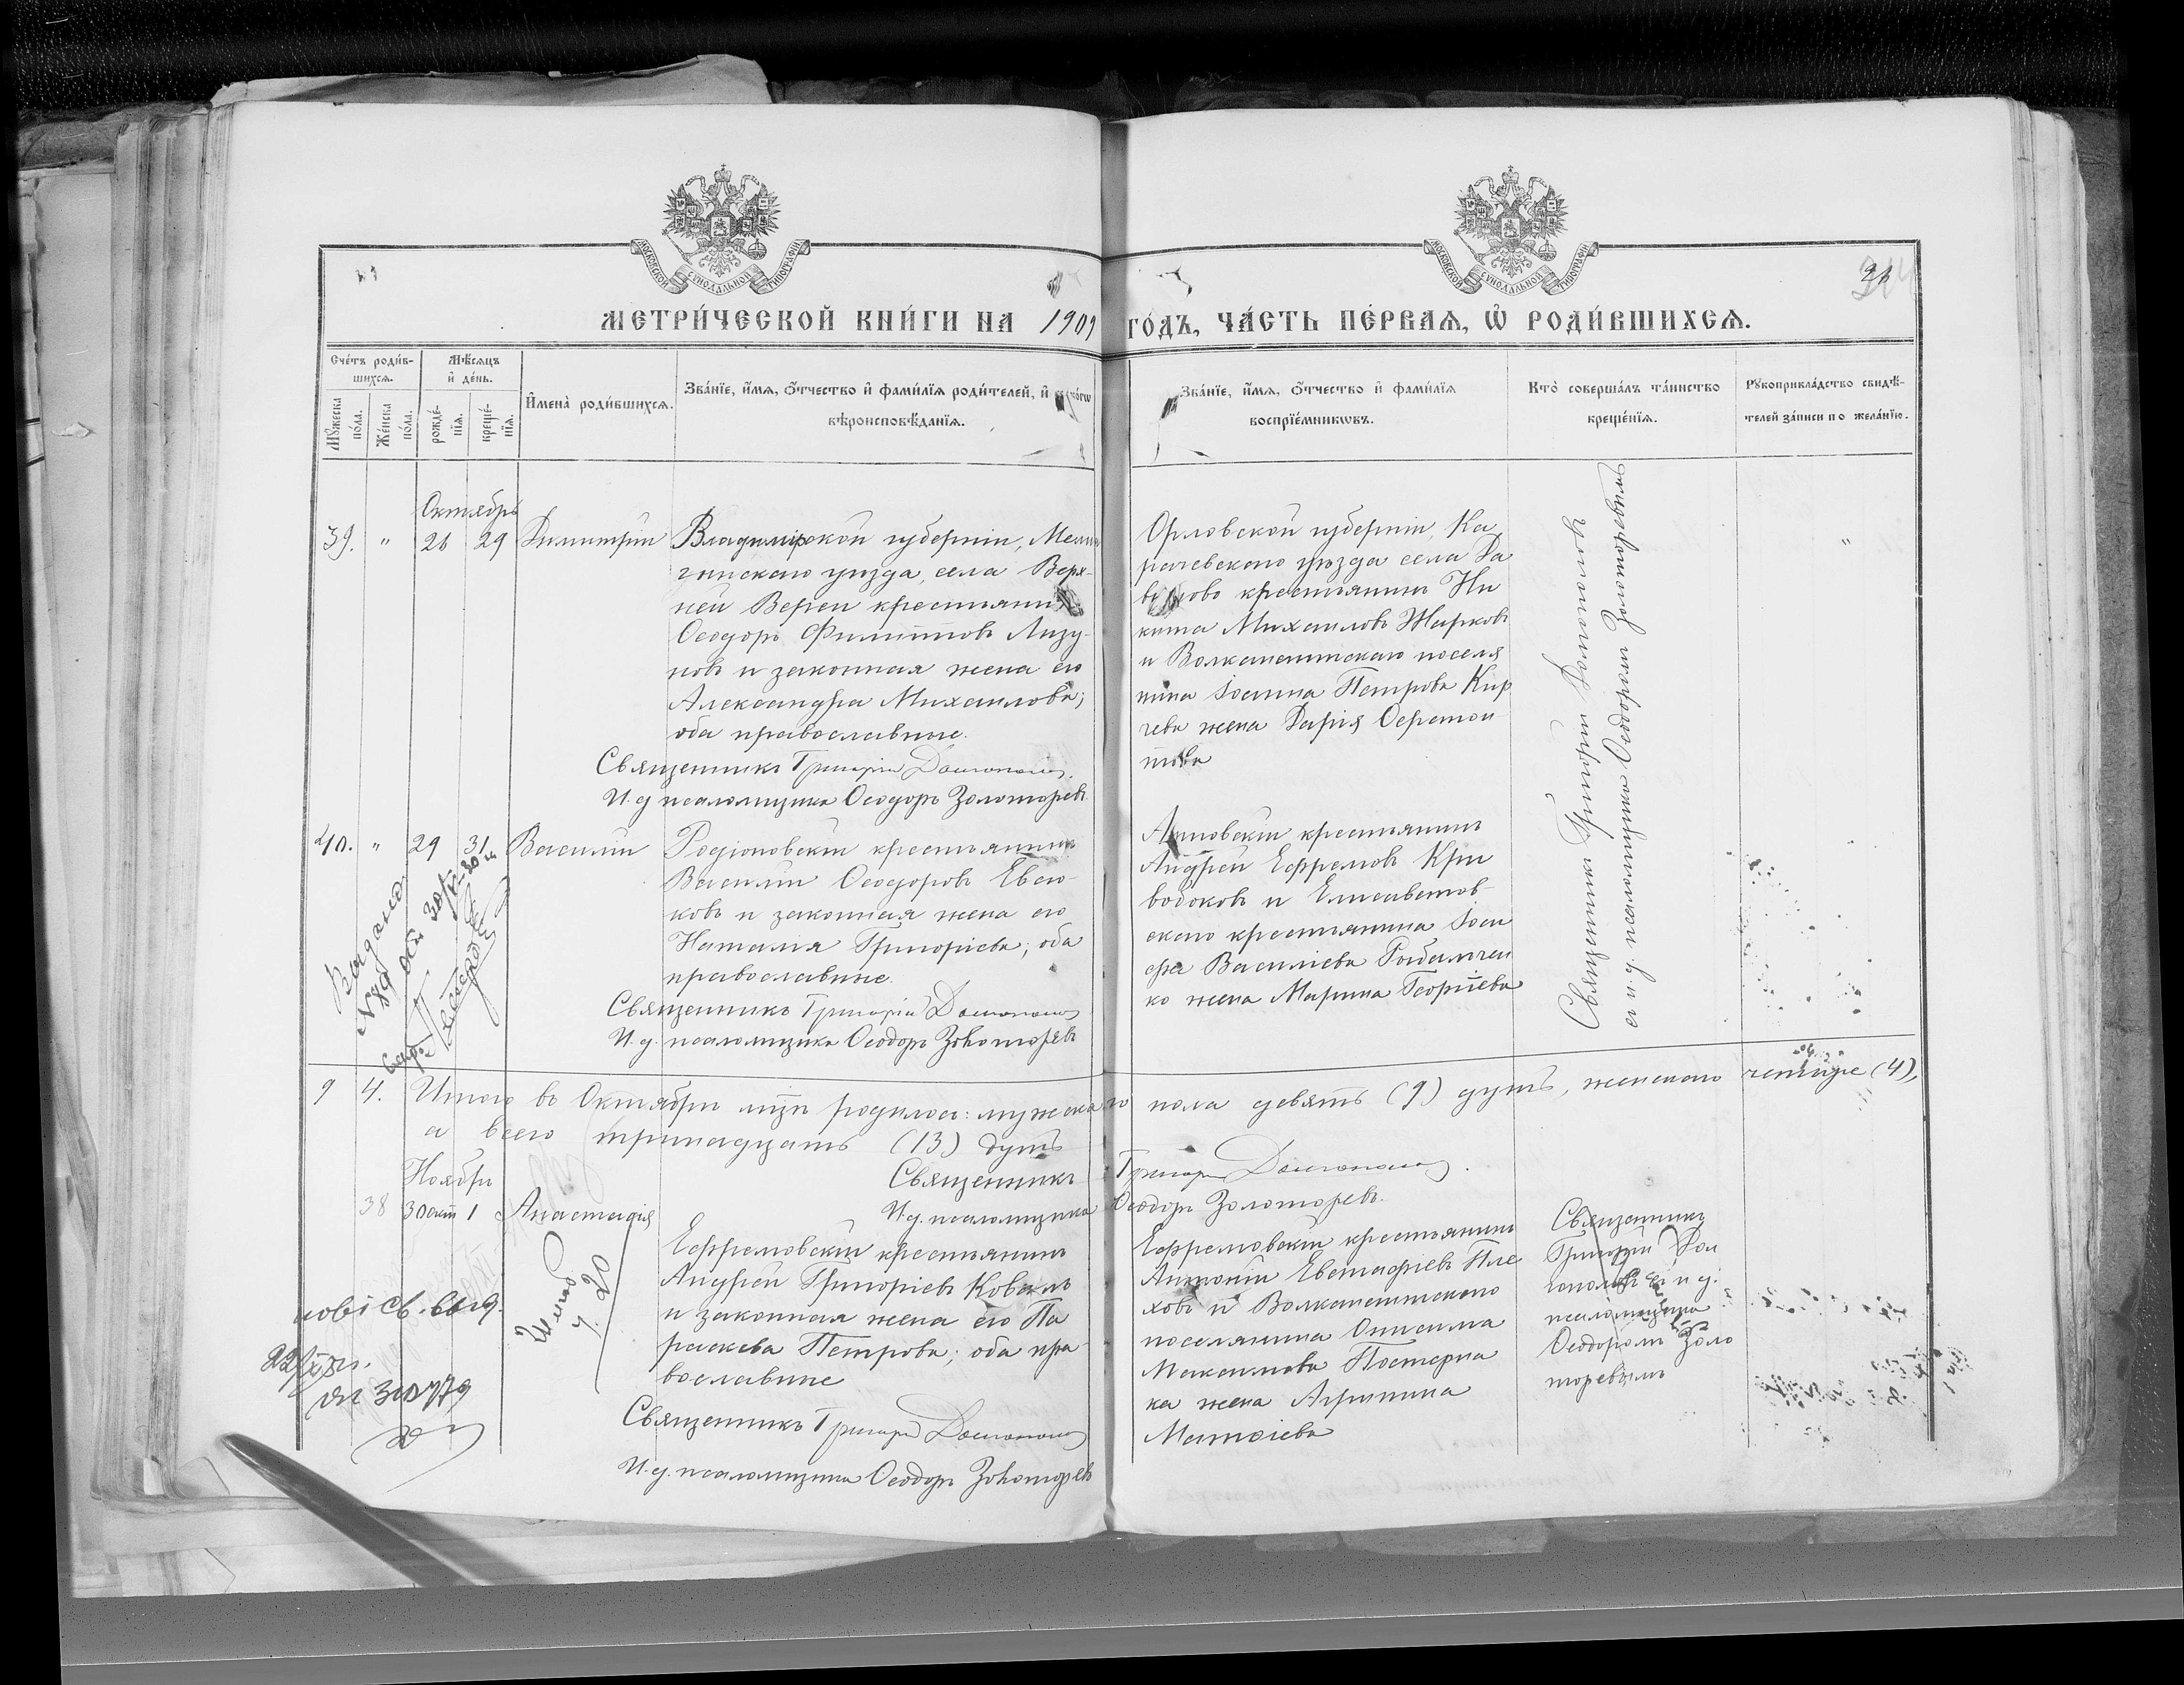 МОСКОВСКОЙ СѴНОДАЛЬНОЙ ТИПОГРАФІИ
МОСКОВСКОЙ СѴНОДАЛЬНОЙ ТИПОГРАФІИ
МЕТРИ́ЧЕСКОЙ КНИ́ГИ НА 1909 ГО́ДЪ, ЧА́СТЬ ПЕ́РВАѦ, Ѡ҆ РОДИ́ВШИХСѦ.
Сче́тъ роди́в-
шихсѧ.
Мꙋ́жеска
по́ла.
Же́нска
по́ла.
Мѣ́сѧцъ
и҆ де́нь.
рожде́-
нїѧ.
креще́-
нїѧ.
И҆мена̀ роди́вшихсѧ.
Зва́нїе, и҆́мѧ, ѻ҆́тчество и҆ фами́лїѧ роди́телей, и҆
вѣроисповѣ́данїѧ.
Зва́нїе, и҆́мѧ, ѻ҆́тчество и҆ фами́лїѧ
воспрїе́мникѡвъ.
Кто̀ соверша́лъ та́инство
креще́нїѧ.
Рꙋкоприкла́дство свидѣ́-
телей за́писи по жела́нїю.
Октябрь
39. " 26 29 Димитрій
Владимірской губерніи, Мелен
гинскаго уѣзда, села Верх-
ней Вереи крестьянинъ
Ѳеодоръ Филипповъ Лизу-
новъ и законная жена его
Александра Михаилова;
оба православные.
Священникъ Григорій Долгополовъ.
И. д. псаломщика Ѳеодоръ Золотаревъ
Орловской губерніи, Ка
рачевскаго уѣзда села
крестьянинъ Ни
кита Михаиловъ Жарковъ
и Волканештскаго поселя
нина Іоанна Петрова Кир
чева жена Дарія Ѳерапон
това
Священникъ Григорій Долгополовъ
съ и. д. псаломщика Ѳеодоромъ Золоторевымъ
"
40. " 29 31 Василій
Родіоновскій крестьянинъ
Василій Ѳеодоровъ Евсю-
ковъ и законная жена его
Наталія Григоріева; оба
православные.
Священникъ Григорій Долгополовъ
И. д. псаломщика Ѳеодоръ Золоторевъ
Анновскій крестьянинъ
Андрей Ефремовъ Кри
вобоковъ и Елисаветов-
скаго крестьянина Іоси
фа Василіева
ко жена Марина Георгіева
Выдано
№ 89
9 4. Итого въ Октябрѣ мцѣ родилось: мужскаго пола девять (9) душъ, женскаго четыре (4),
а всего тринадцать (13) душъ
Священникъ Григорій Долгополовъ.
И. д. псаломщика Ѳеодоръ Золоторевъ.
Ноябрь
38 30 окт 1 Анастасія
Ефремовскій крестьянинъ
Андрей Григоріевъ Коваль
и законная жена его Па
раскева Петрова; оба пра-
вославные
Священникъ Григорій Долгополовъ
И. д. псаломщика Ѳеодоръ Золоторевъ
Ефремовскій крестьянинъ
Антоній Евстафіевъ Пле
ховъ и Волканештскаго
поселянина Онисима
Максимова Постерна
ка жена Агрипина
Матѳіева
Священникъ
Григорій Дол
гополовъ съ и д.
псаломщика
Ѳеодоромъ Золо
торевымъ